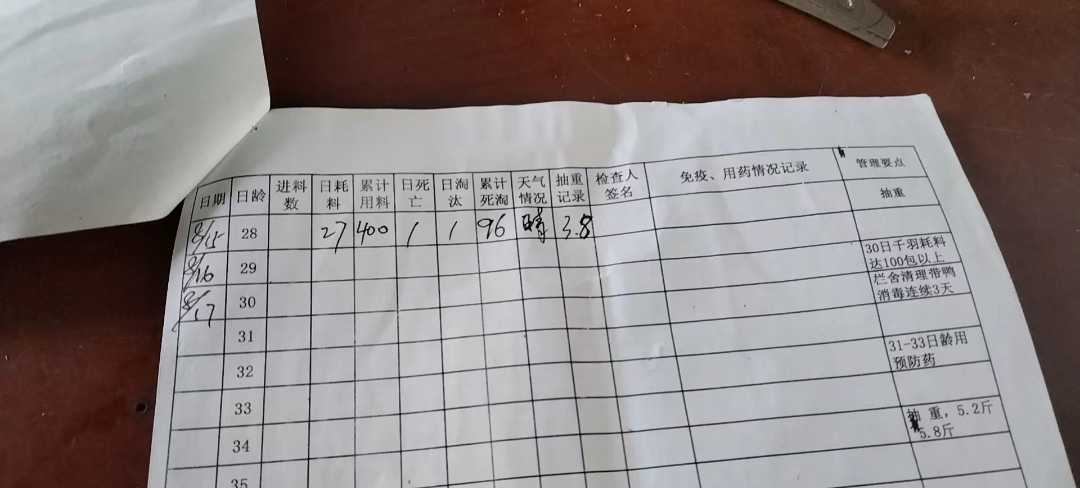 日期 日龄 进料数 日耗料 累计用料 日死亡 日淘汰 累计死淘 天气情况 抽重记录 检查人签名 免疫、用药情况记录 管理要点
抽重
8/15 28 27 400 1 1 96 晴 3.8
8/16 29 30日千羽耗料
达100包以上
8/17 30 栏舍清理带鸭
消毒连续3天
31
32 31-33日龄用
预防药
33
34 抽 重,5.2斤
5.8斤
35